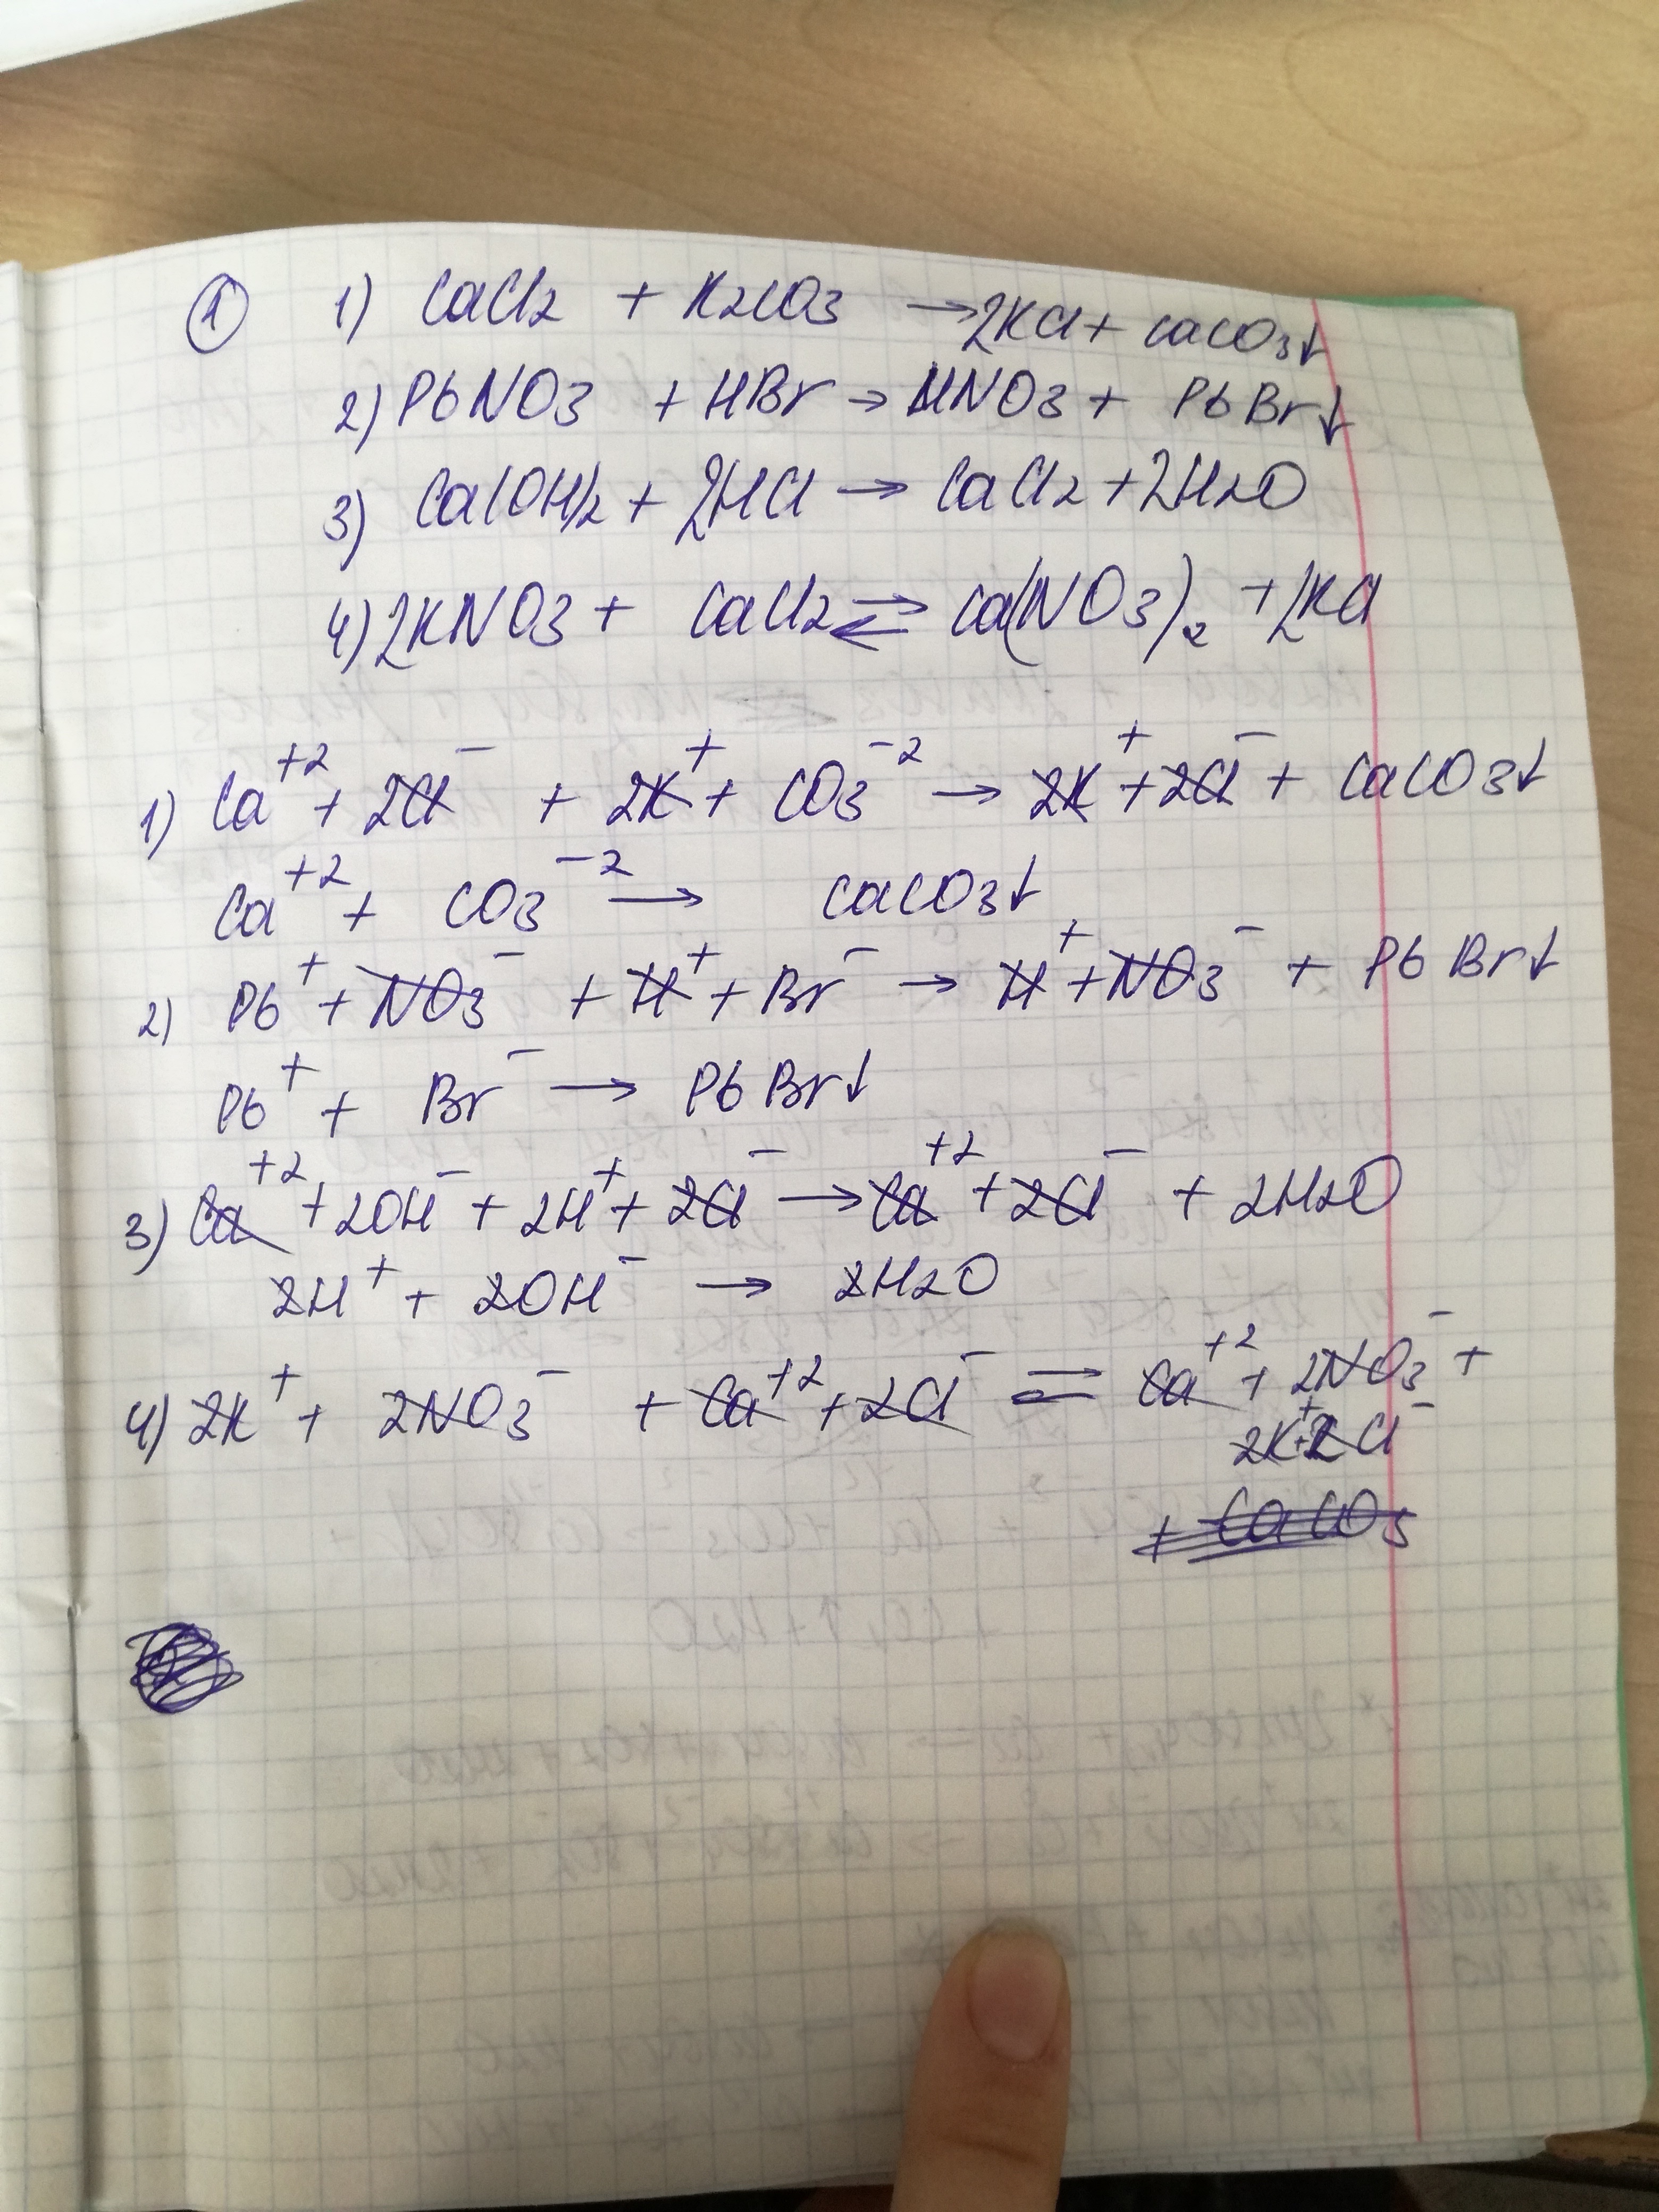 ① 1) CaCl2 + K2CO3 → 2KCl + CaCO3↓
2) PbNO3 + HBr → HNO3 + PbBr↓
3) Ca(OH)2 + 2HCl → CaCl2 + 2H2O
4) 2KNO3 + CaCl2 ⇌ Ca(NO3)2 + 2KCl
1) Ca⁺² + 2Cl⁻ + 2K⁺ + CO3⁻² → 2K⁺ + 2Cl⁻ + CaCO3↓
Ca⁺² + CO3⁻² → CaCO3↓
2) Pb⁺ + NO3⁻ + H⁺ + Br⁻ → H⁺ + NO3⁻ + PbBr↓
Pb⁺ + Br⁻ → PbBr↓
3) Ca⁺² + 2OH⁻ + 2H⁺ + 2Cl⁻ → Ca⁺² + 2Cl⁻ + 2H2O
2H⁺ + 2OH⁻ → 2H2O
4) 2K⁺ + 2NO3⁻ + Ca⁺² + 2Cl⁻ ⇌ Ca⁺² + 2NO3⁻ +
2K⁺ + 2Cl⁻
+ CaCO3